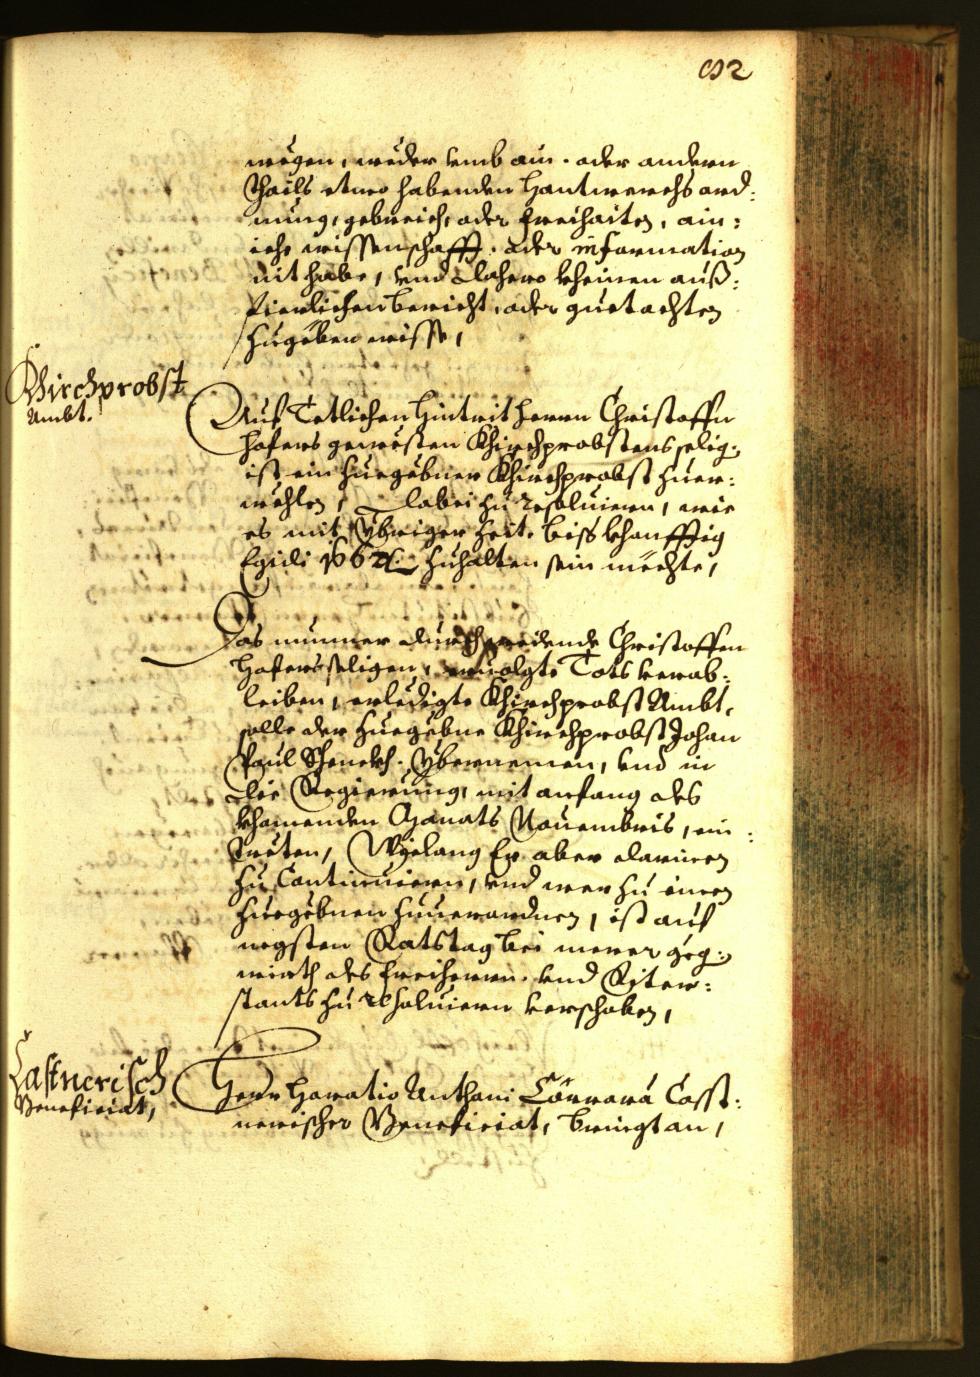 192
wegen, weder umb ain- oder andern
thails etwo habenden Hantwerchs ord:
nung, gebreich, oder freihaiten, ain:
iche wissenschafft- oder information
nit habe, und dahero kheinen auß:
fierlichen bericht, oder guetachten
zugeben wisse,
Khirchprobst
Ambt.
Auf Tetlichen Hintrit herrn Christoffn
Hofers gewesten Khirchprobstens selig:
ist ein zuegebner Khirchprobst zuer:
wehlen, dabei zu resoluiern, wie
es mit ybriger Zeit, biss khonfftig
Egidi 166 zuhalten sein mechte,
Das nunmer durch Christoffen
Hofers seligen, ervolgte Tots verab:
leiben, erledigte Khirchprobst Ambt,
solle der zuegebne Khirchprobst Johan
Paul Schenckh- ybernemen, und in
die Regierung, mit anfang des
khomenden Monats Nouembris, ein:
tretten, Wielang Er aber darinen
zu Continuiern, und wer zu einen
zuegebnen zuuerordnen, ist auf
negsten Ratstag bei merer geg:
wirth des freiherrn- und Riter:
stants zu resoluiern verschoben,
Castnerisch
Beneficiat,
Herr Horatio Anthoni Carrara Casst:
nerischer Beneficiat, bringt an,